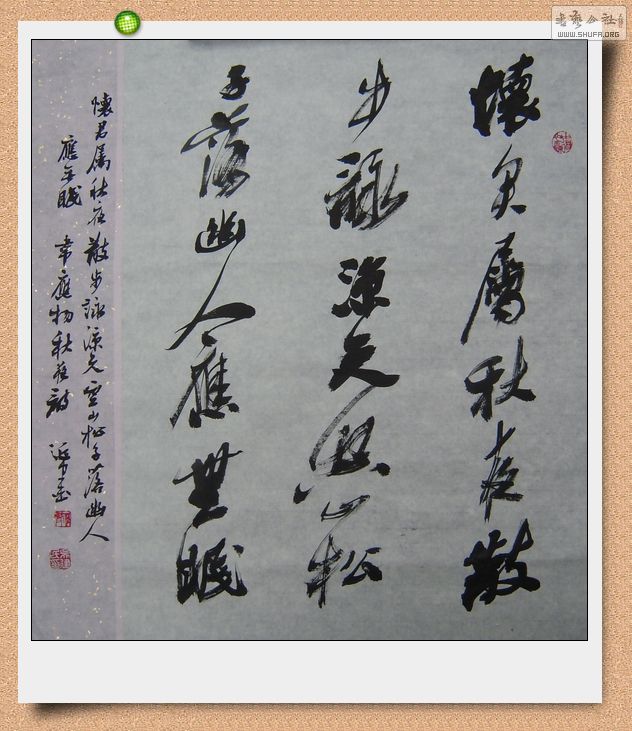 懷君屬秋夜散
步詠涼天空山松
子落幽人應無眠
懷君屬秋夜散步詠涼天空山松子落幽人
應無眠 韋應物秋夜詩
书艺公社
WWW.SHUFA.ORG